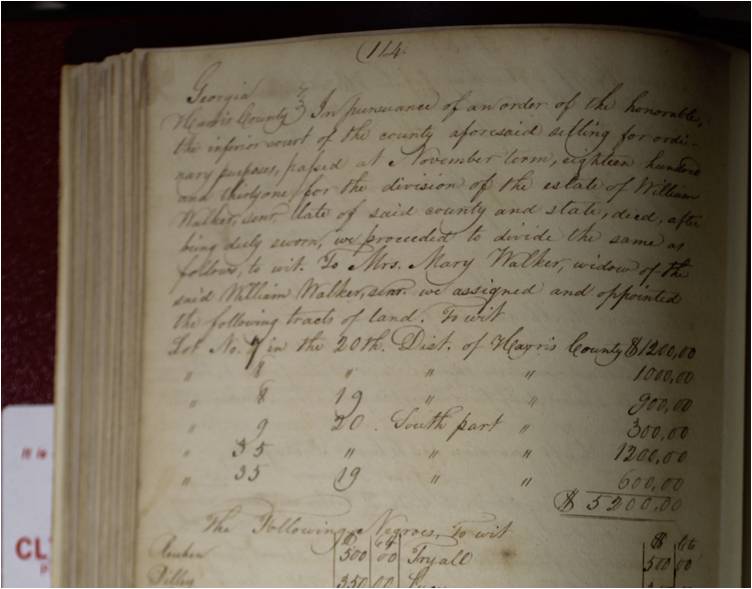 (114.
Georgia }
Harris County } In pursuance of an order of the honorable,
the inferior court of the county aforesaid sitting for ordi-
nary purposes, passed at November term, eighteen hundred
and thirtyone, for the division of the estate of William
Walker, senr. late of said county and state, died, after
being duly sworn, we proceeded to divide the same as
follows, to wit. To Mrs. Mary Walker, widow of the
said William Walker, senr. we assigned and appointed
the following tracts of land. To wit
Lot No. 7 in the 20th. Dist. of Harris County $1200,00
" " " " " 1000,00
" 8 19 " " 900,00
" 9 20. South part " 300,00
" 35 " " " 1200,00
" 35 19 " " 600,00
$ 5200.00
The Following Negroes, To wit
$ cts $ cts
Reuben 500 00 Tryall 500 00
Dilley 350 00
It is
CL